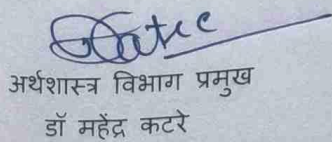 अर्थशास्त्र विभाग प्रमुख
डॉ महेंद्र कटरे